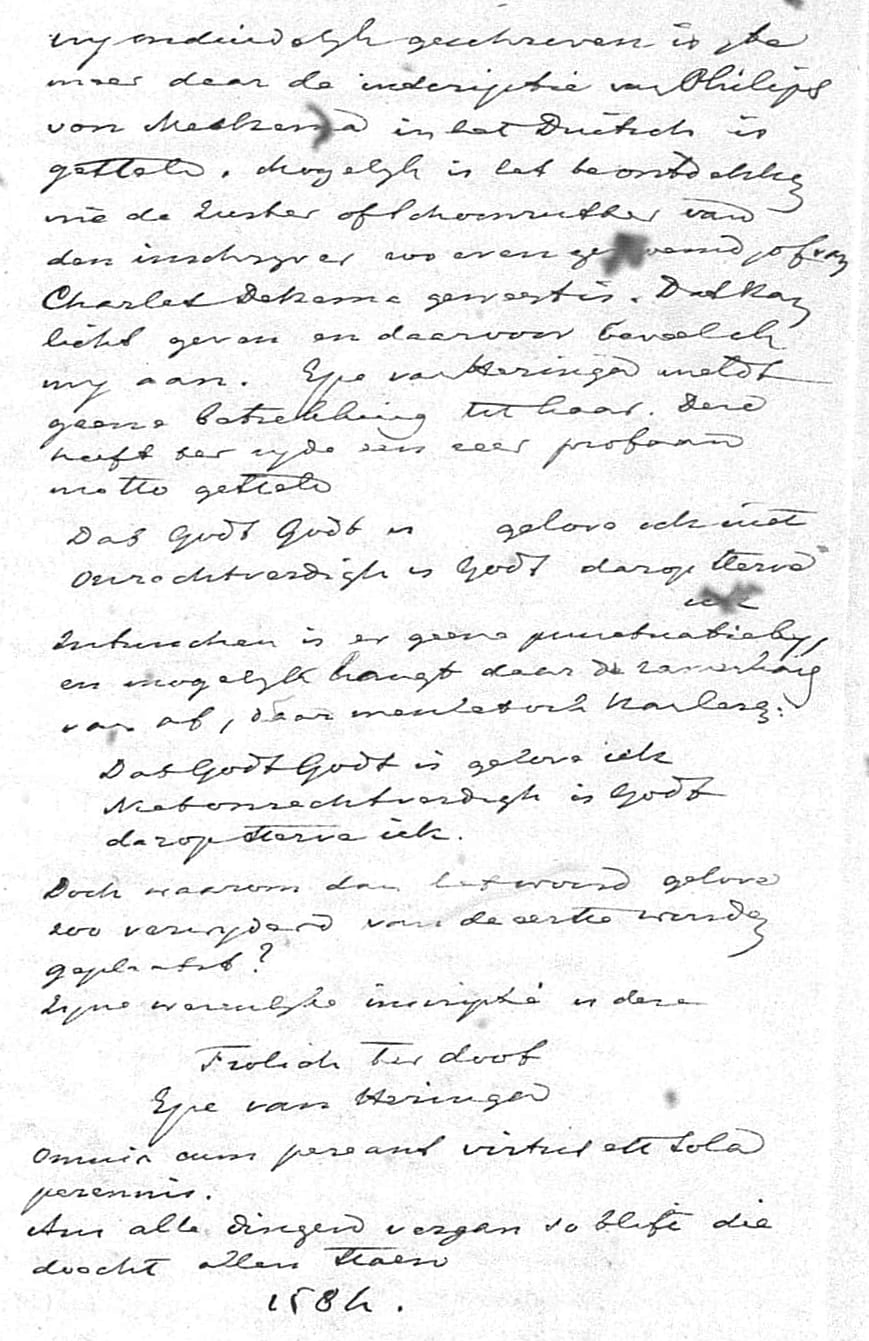 my onduidelijk geschreven is, te
meer daar de inscriptie van Philips
von Meckema in het Duitsch is
gesteld. Mogelijk is het
de Zuster of Schoonzuster van
den inschryver zo even genoemd, of van
Charles Dekema geweest is. Dat kan
licht geven en daarvoor beveel ik
my aan. Epe van Heringa meldt
geene betrekking tot haar. Deze
heeft ter zyde een zeer profaan
motto gesteld
Das Godt Godt is gelove ick niet
Onrechtverdigh is Godt darop sterve
ick
Intusschen is er geene punctuatie by,
en mogelyk hangt daar de zamenhang
van af, daar men het ook kan lezen:
Das Godt Godt is gelove ick
Niet onrechtverdigh is Godt
darop sterve ick.
Doch waarom dan het woord gelove
zoo verwyderd van de eerste woorden
geplaatst?
Zyne wezenlyke inscriptie is deze
Frolich ter doot
Epe van Heringa
Omnia cum pereant virtus est sola
perennis.
Als alle dingen vergan so blift die
doecht allen staen
1584.